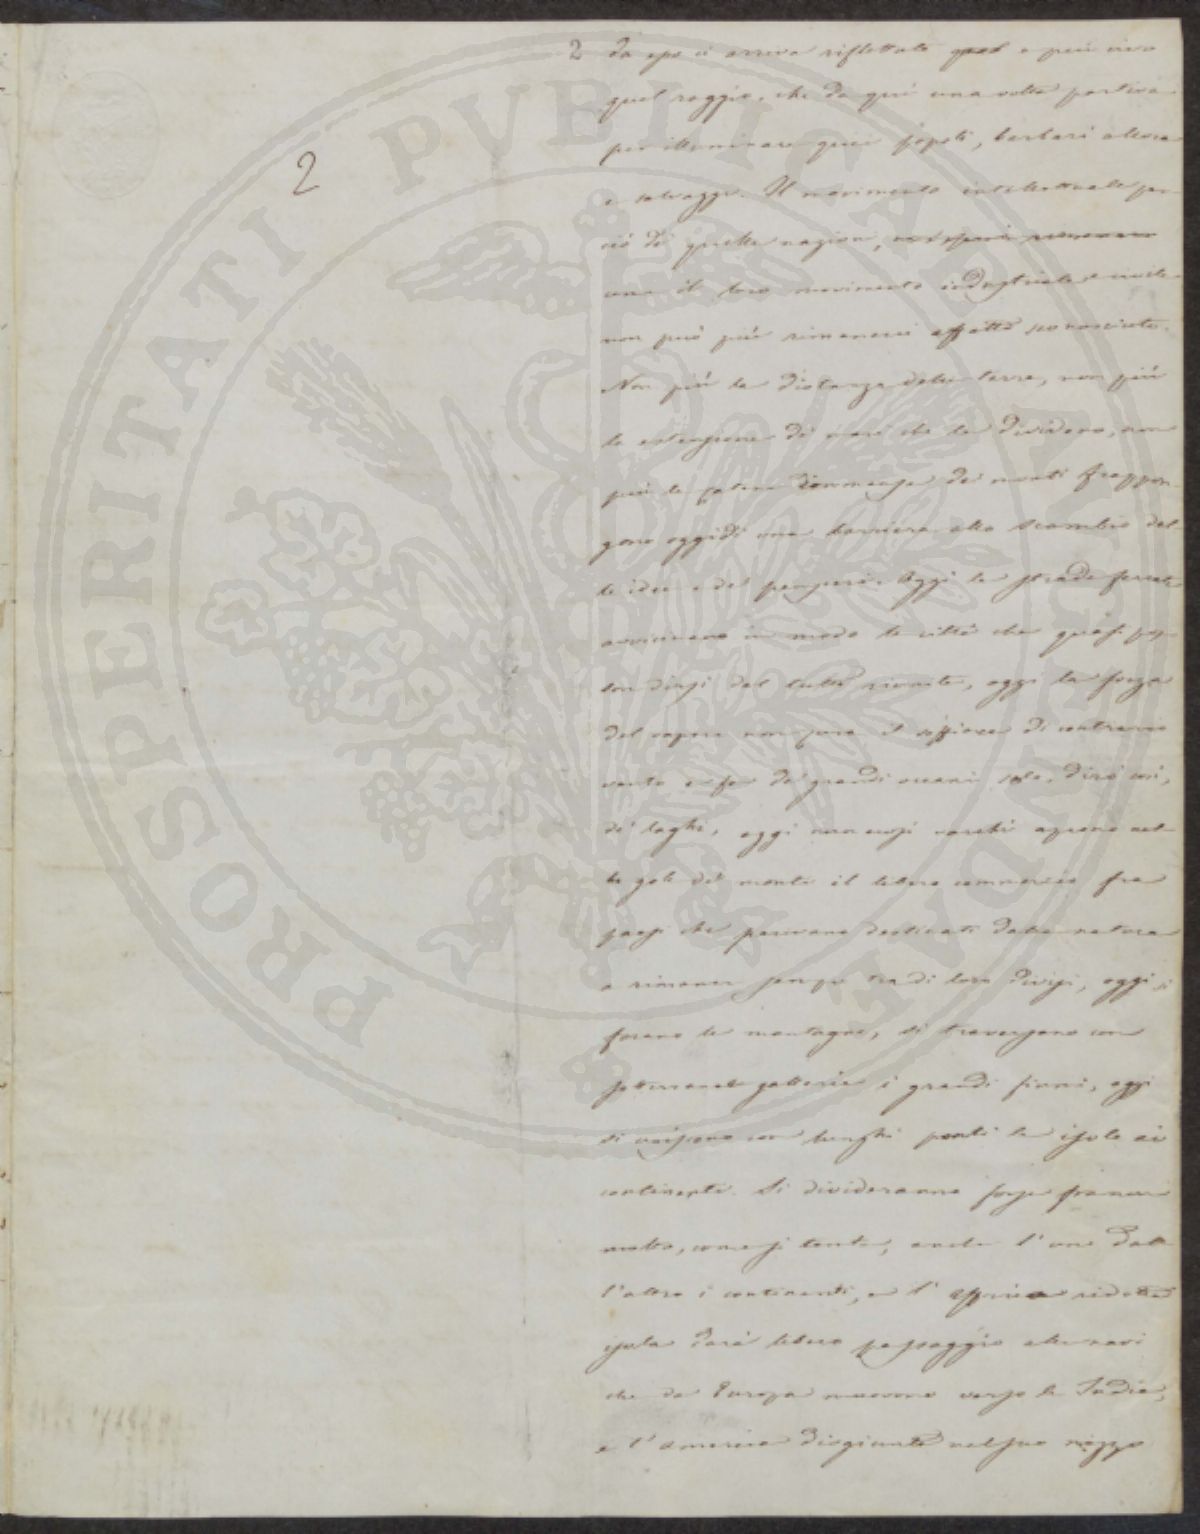 2
2 da esso ci arriva riflettuto quasi e più vivo
quel raggio, che da qui una volta partiva
per illuminare quei popoli, barbari allora
e selvaggi. Il movimento intellettuale per
ciò di quelle nazioni,
come il loro movimento industriale e civile
non può più rimanerci affatto sconosciuto.
Non più la distanza delle terre, non più
la estensione di mari che le dividono, non
più le catene immense dei monti frappon
gono oggidì una barriera allo scambio del
le idee e dei pensieri. Oggi le strade ferrate
avvicinano in modo le città che quasi pos
son dirsi del tutto riunite, oggi la forza
del vapore non cura il soffiare di contrario
vento e fa dei grandi oceani solo, dirò così,
dei laghi, oggi immensi varchi aprono nel
le gole dei monti il libero commercio fra
paesi che parevano destinati dalla natura
a rimaner sempre tra di loro divisi, oggi si
forano le montagne, si traversano con
sotterranee gallerie i grandi fiumi, oggi
si uniscono con lunghi ponti le isole ai
continenti. Si divideranno forse fra non
molto, come si tenta, anche l'uno dal
l'altro i continenti, e l'Affrica ridotta
isola darà libero passaggio alle navi
che da Europa muovono verso le Indie,
e l'America disgiunta nel suo mezzo
PROSPERITATI PVBLICAE AVGENDAE